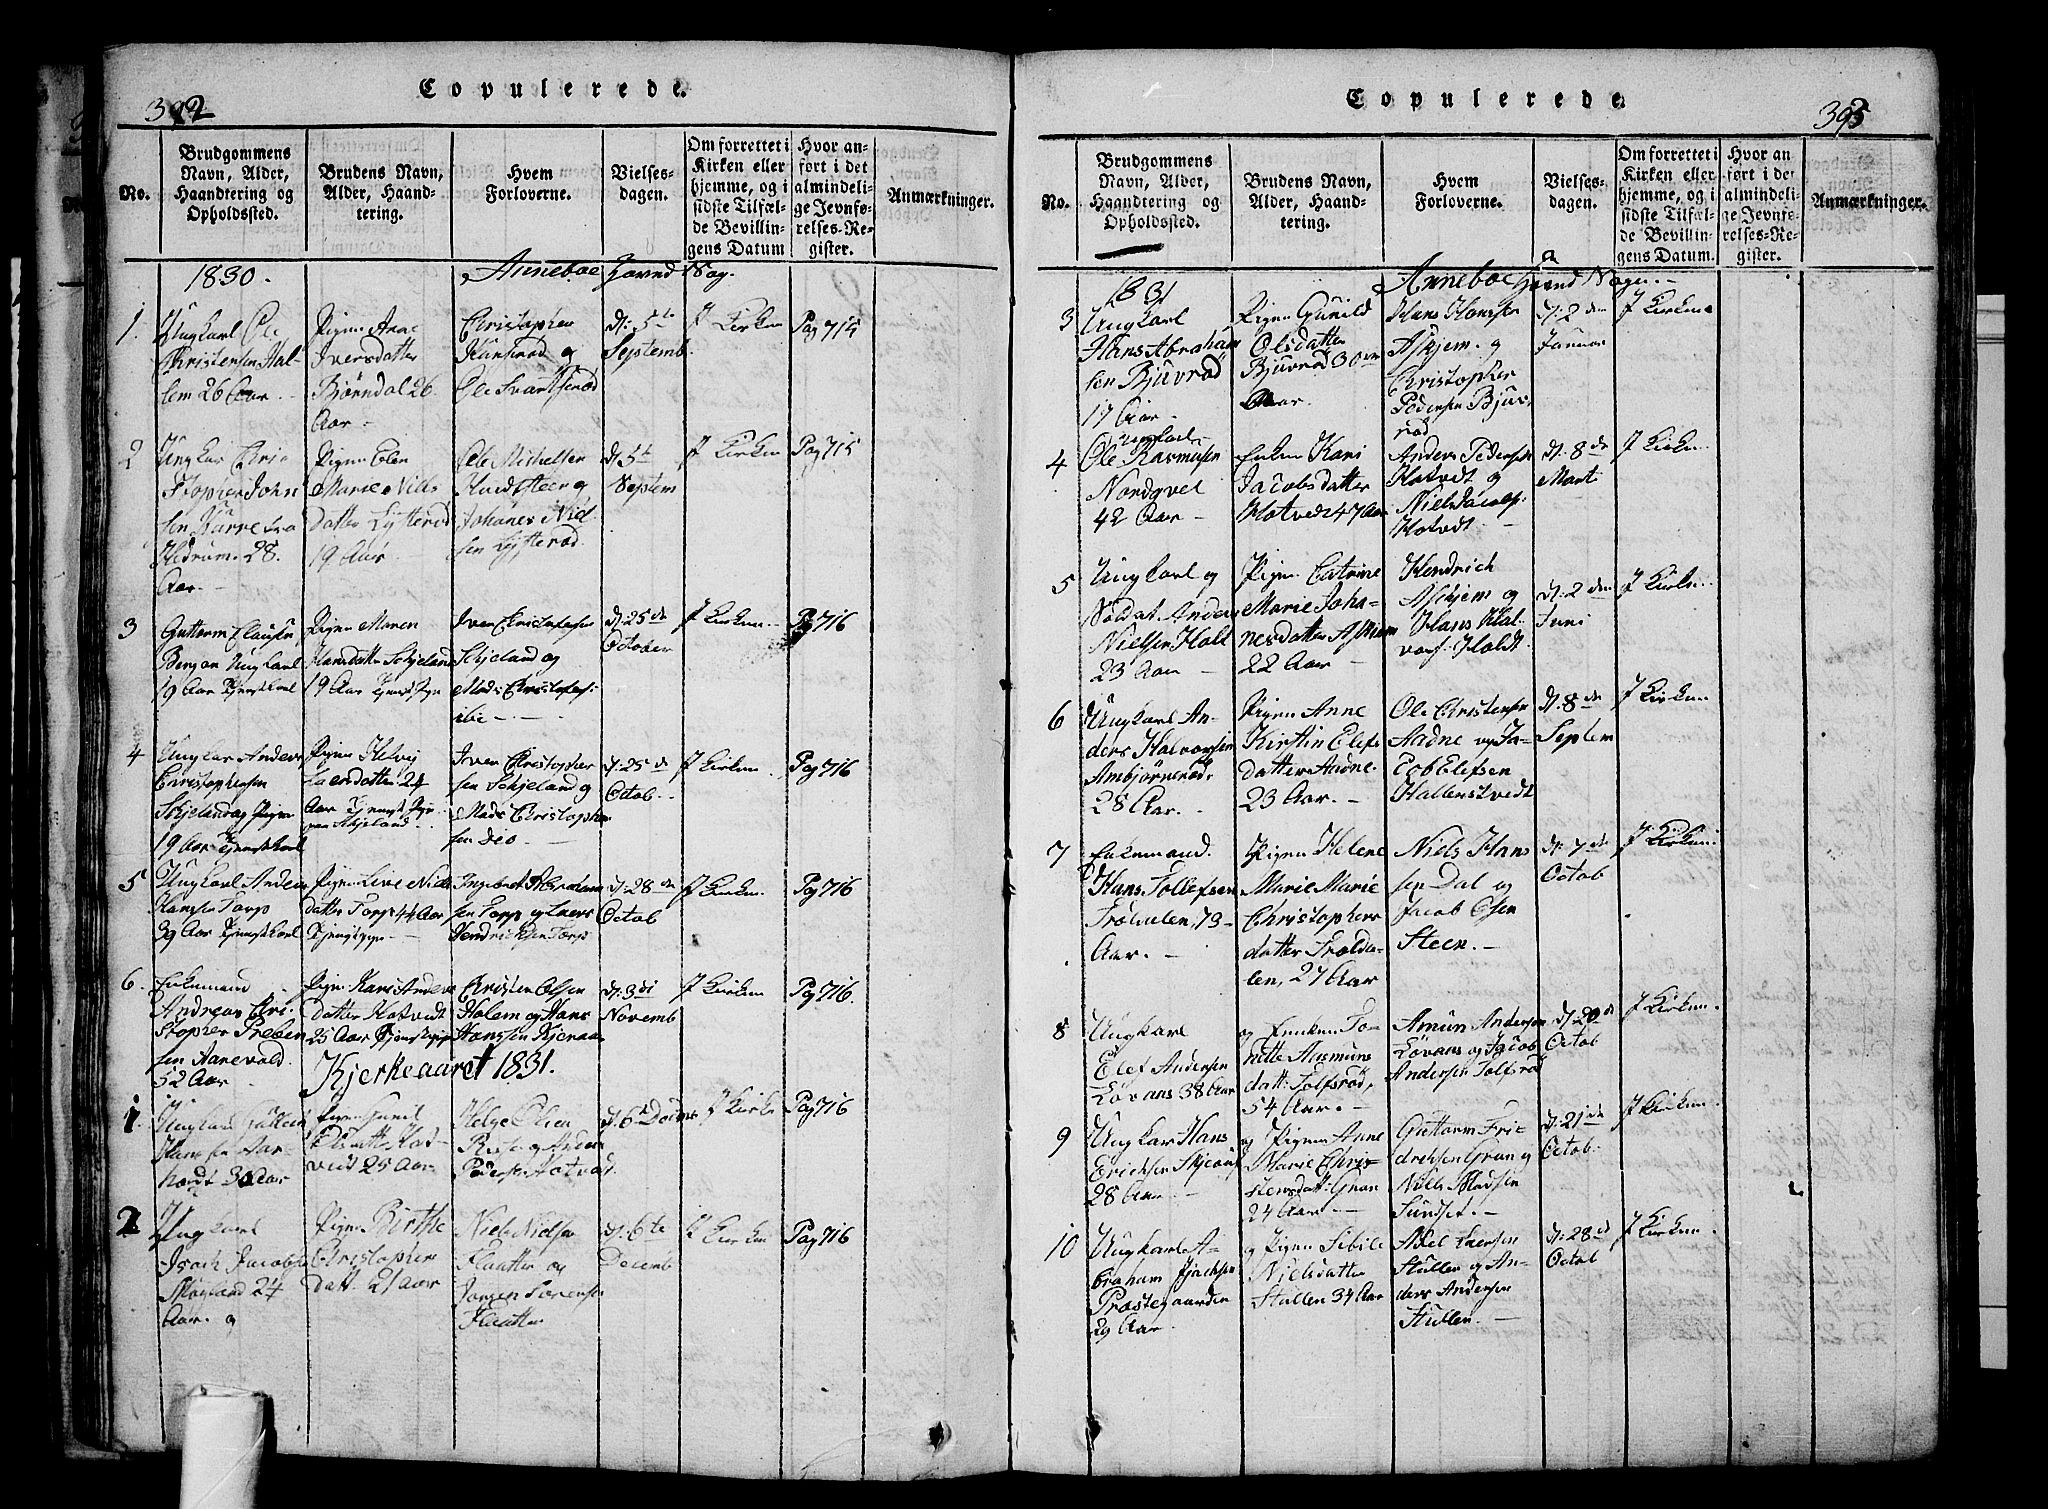 392
Copulerede.
No.
Brudgommens
Navn, Alder,
Haandtering og
Opholdssted.
Brudens Navn,
Alder, Haand-
tering.
Hvem
Forloverne.
Vielses-
dagen.
Om forrettet i
Kirken eller
hjemme, og i
sidste Tilfæl-
de Bevillin-
gens Datum
Hvor an-
ført i det
almindeli-
ge Jevnfø-
relses-Re-
gister.
Anmærkninger.
1830.
Anneboe Hovnd Sog.
1.
Ungkarl Ole
Christensen Hal-
sem 26 Aar.
Pigen Anne
Iversdatter
Bjørndal 26
Aar
Christopher
og
Ole Svartserød
d: 5te
Septemb
I Kirken
Pag 714
2
Ungkar Chri-
stopher John
sen Varre fra
Hedrum. 28.
Aar.
Pigen Elen
Marie Niels
datter Lytterød
19 Aar.
Ole Michelsen
og
Johanes Niel-
sen Lytterød
d: 5te
Septem
I Kirken
Pag 715
3
Guttorm Clausen
Bergan Ungkarl
19 Aar Tjenestkarl
Pigen Maren
Hansdatter Schjeland
19 Aar Tjenest Pige
Iver Christophersen
Schjeland og
Mads Christophers:
ibid
d: 25de
October
I Kirken
Pag 716
4
Ungkar Anders
Christophersen
Schjeland
19 Aar Tjenestkarl
Pigen Helvig
Larsdatter 24
Aar Tjenest Pige
Schjeland
Iver Christopher
sen Schjeland og
Mads Christopher
sen dio
d: 25de
Octob
I Kirken
Pag 716
5
Ungkarl Anders
Hansen Torp
39 Aar Tjenestkarl
Pigen Live Niels
datter Torp 44 Aar
Tjenestpige
Ingebret Abraham
sen Torp og Lars
Hendrichsen Torp
d: 28de
Octob
I Kirken
Pag 716
6.
Enkemand
Andreas Chri-
stopher Preben
sen Aanevold
52 Aar
Pigen Kari Anders
datter Hotvedt
25 Aar Tjenestepige
Christen Olsen
Holem og Hans
Hanssen Kjeraas
d: 3di
Novemb
I Kirken
Pag 716.
Kjerkeaaret 1831.
1.
Ungkarl
Hansen Aar-
30 Aar
Pigen Gunil
Olsdatter Hot-
vedt 25 Aar
Helge Olsen
og Anders
Pedersen Hotvedt
d: 6te
I Kirken
Pag 716
2
Ungkarl
Isach Jacobsen
Skogland 24
Aar. og
Pigen Birthe
Christopher
datt: 21 Aar
Niels Nielsen
Flaatten og
Jørgen Sørensen
Flaatten
d: 6te
Decemb
I Kirken
Pag 716
Copulerede.
393
No.
Brudgommens
Navn, Alder,
Haandtering og
Opholdssted.
Brudens Navn,
Alder, Haand-
tering.
Hvem
Forloverne.
Vielses-
dagen.
Om forrettet i
Kirken eller
hjemme, og i
sidste Tilfæl-
de Bevillin-
gens Datum.
Hvor an
ført i det
almindeli-
ge Jevnfø-
relses-Re-
gister.
Anmærkninger.
1831
Anneboe Hovnd Sogn.
3
Ungkarl
Hans Abraham
sen Bjuvrød
17 Aar
Pigen Gunild
Olsdatter
Bjuvrød 30
Aar.
Hans Hansen
Askjem og
Christopher
Pedersen Bjuv-
rød
d: 2den
Januar
I Kirken
4
Ungkarl
Ole Rasmusen
Nordqvel
42 Aar
Enken Kari
Jacobsdatter
Hotvedt 47 Aar
Anders Pedersen
Hotvedt og
Niels Jacobs:
Hotvedt
d: 8de
Marti
I Kirken
5
Ungkarl og
Soldat Anders
Nielsen Holt
23 Aar
Pigen Catrine
Marie Joha-
nesdatter Askjem
22 Aar
Hendrich
Askjem og
Hans Hal-
vors: Holdt
d: 2den
Juni
I Kirken
6
Ungkarl An-
ders Halvorsen
Ambjørnerød
28 Aar.
Pigen Anne
Kirstin Elefs
datter Aadne
23 Aar.
Ole Christensen
Aadne og Ja-
cob Elefsen
Hallenstvedt
d: 8de
Septem
I Kirken
7
Enkemand.
Hans Tollefsen
Troldalen, 73
Aar.
Pigen Helene
Marie Marie
Christophers
datter Trolda-
len, 27 Aar
Niels Hans
sen Dal og
Jacob Olsen
Steen.
d: 7de
Octob
I Kirken
8
Ungkarl
Elef Andersen
Løvaas 38 Aar
og Enken To-
nette Aasmuns
datt: Tolfsrød,
54 Aar.
Amun Andersen
Løvaas og Jacob
Andersen Tolfsrød
d: 20de
Octob
I Kirken.
9
Ungkar Hans
Erichsen
28 Aar.
og Pigen Anne
Marie Chris-
tensdatt: Gran
24 Aar.
Guttorm Fri-
drichsen Gran og
Niels Madsen
Sundset.
d: 21de
Octob.
I Kirken
10
Ungkarl A-
braham Isachsen
Præstegaarden
29 Aar.
og Pigen Sibile
Nielsdatter
Stullen 34 Aar
Axel Larsen
Stullen og An-
ders Andersen
Stullen.
d: 28de
Octob
I Kirken.